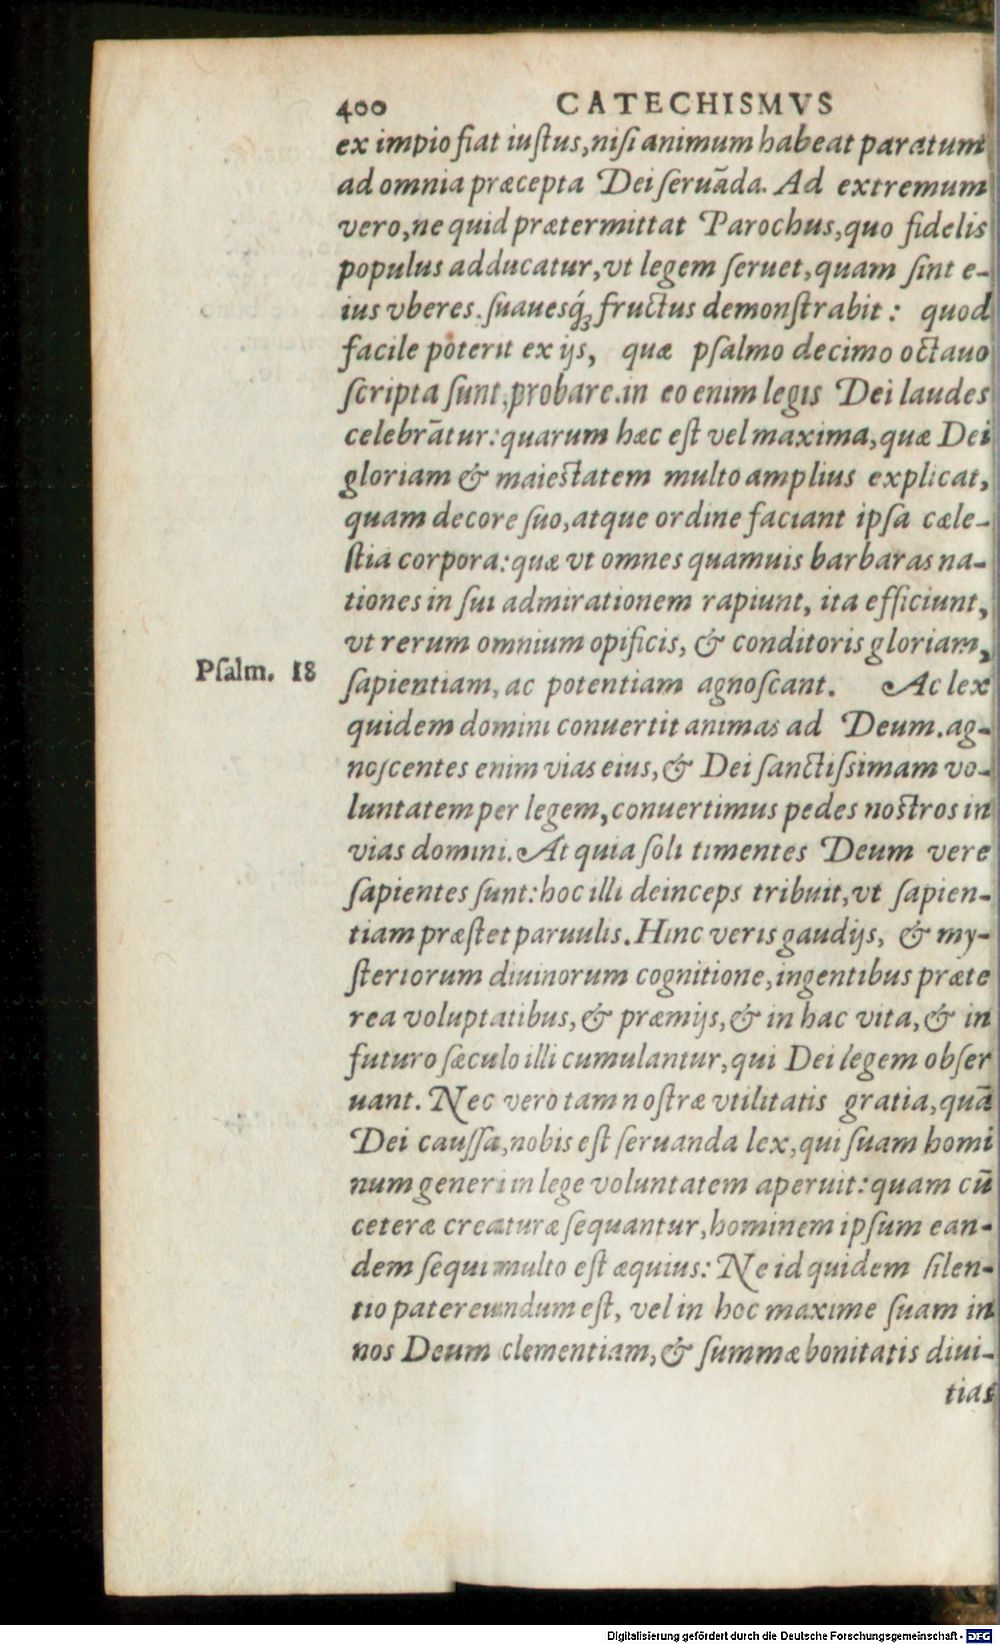 400 CATECHISMVS
ex impio fiat iuſtus, niſi animum habeat paratum
ad omnia præcepta Dei ſeruãda. Ad extremum
vero, ne quid prætermittat Parochus, quo fidelis
populus adducatur, vt legem ſeruet, quam ſint e-
ius vberes. ſuauesq́ꝫ fructus demonſtrabit: quod
facile poterit ex ijs, quæ pſalmo decimo octauo
ſcripta ſunt, probare. in eo enim legis Dei laudes
celebrãtur: quarum hæc eſt vel maxima, quæ Dei
gloriam & maieſtatem multo amplius explicat,
quam decore ſuo, atque ordine faciant ipſa cæle-
ſtia corpora: quæ vt omnes quamuis barbaras na-
tiones in ſui admirationem rapiunt, ita efficiunt,
vt rerum omnium opificis, & conditoris gloriam,
Pſalm. 18
ſapientiam, ac potentiam agnoſcant. Ac lex
quidem domini conuertit animas ad Deum. ag-
noſcentes enim vias eius, & Dei ſanctiſsimam vo-
luntatem per legem, conuertimus pedes noſtros in
vias domini. At quia ſoli timentes Deum vere
ſapientes ſunt: hoc illi deinceps tribuit, vt ſapien-
tiam præſtet paruulis. Hinc veris gaudijs, & my-
ſteriorum diuinorum cognitione, ingentibus præte
rea voluptatibus, & præmijs, & in hac vita, & in
futuro ſæculo illi cumulantur, qui Dei legem obſer
uant. Nec vero tam noſtræ vtilitatis gratia, quã
Dei cauſſa, nobis eſt ſeruanda lex, qui ſuam homi
num generi in lege voluntatem aperuit: quam cũ
ceteræ creaturæ ſequantur, hominem ipſum ean-
dem ſequi multo eſt æquius: Ne id quidem ſilen-
tio patereundum eſt, vel in hoc maxime ſuam in
nos Deum clementiam, & ſummæ bonitatis diui-
tias
Digitalisierung gefördert durch die Deutsche Forschungsgemeinschaft - DFG